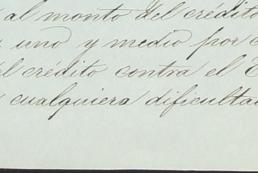 al monto del crédito
uno y medio por
el crédito contra el E
cualquiera dificulta